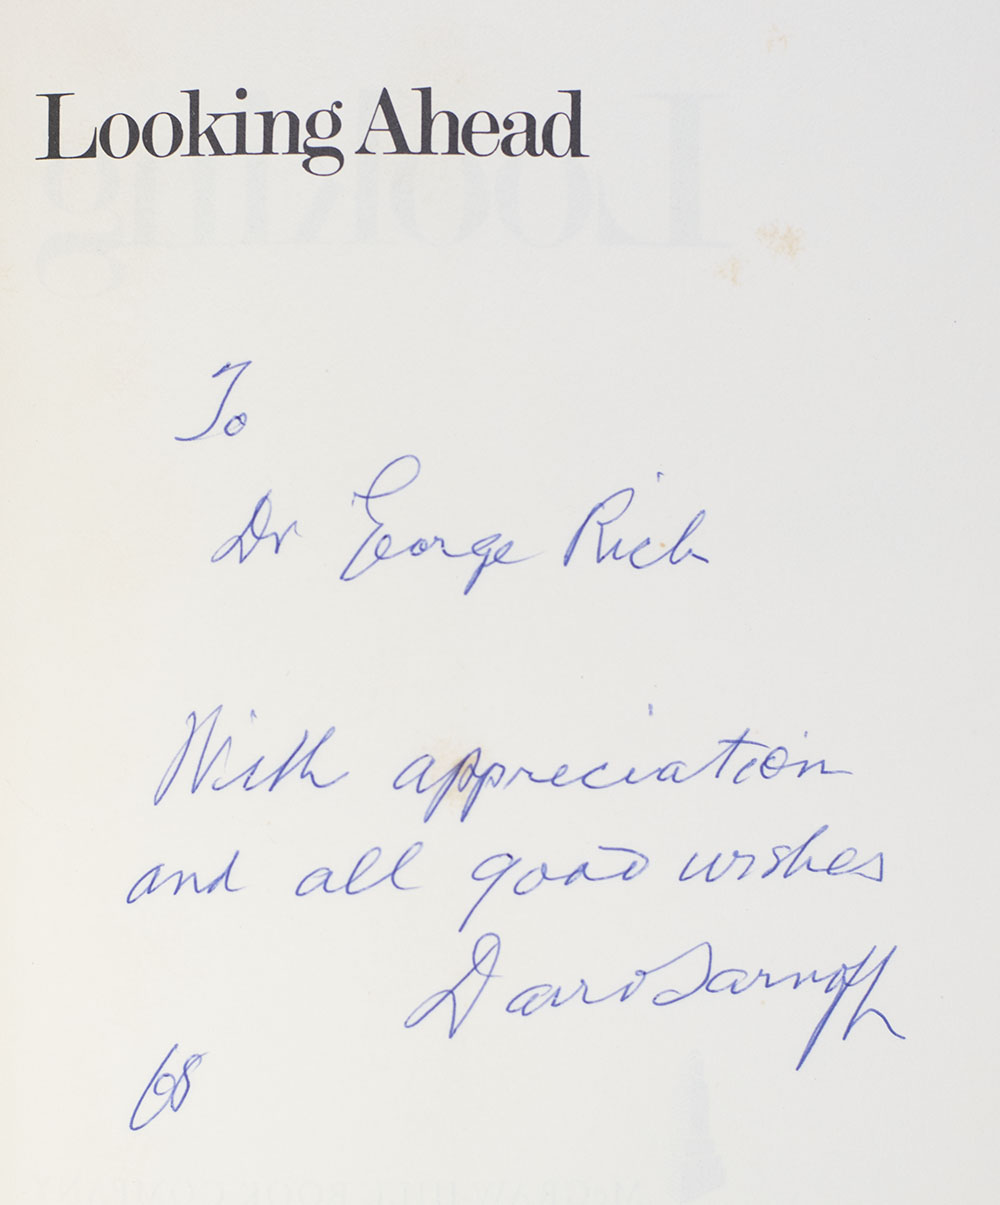 Looking Ahead
To
Dr George Rich
With appreciation
and all good wishes
David Sarnoff
68